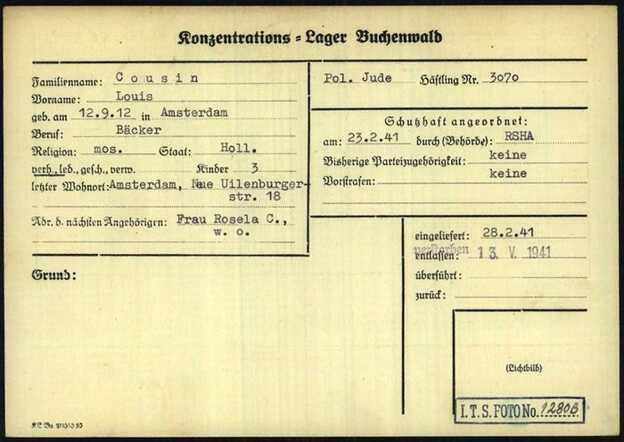 Konzentrations = Lager Buchenwald
Familienname: Cousin
Vorname: Louis
geb. am 12.9.12 in Amsterdam
Beruf: Bäcker
Religion: mos. Staat: Holl.
verh., led., gesch., verw. Kinder 3
letzter Wohnort: Amsterdam, Neue Uilenburger-
str. 18
Adr. d. nächsten Angehörigen: Frau Rosela C.,
w. o.
Grund:
Pol. Jude Häftling Nr. 3070
Schutzhaft angeordnet:
am: 23.2.41 durch (Behörde): RSHA
Bisherige Parteizugehörigkeit: keine
Vorstrafen: keine
eingeliefert: 28.2.41
verstorben 13. V. 1941
entlassen:
überführt:
zurück:
(Lichtbild)
I.T.S. FOTO No. 12808